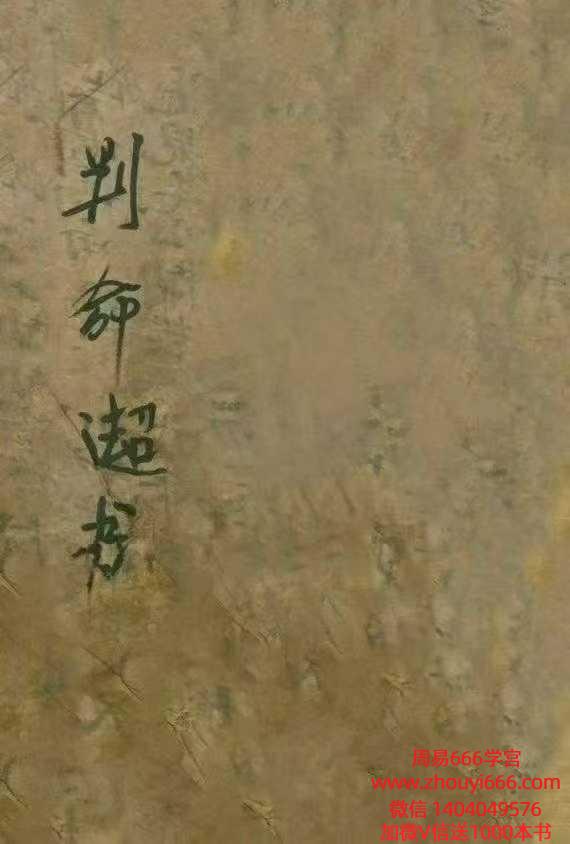 判命
周易666学宫
www.zhouyi666.com
微信 1404049576
加微V信送1000本书